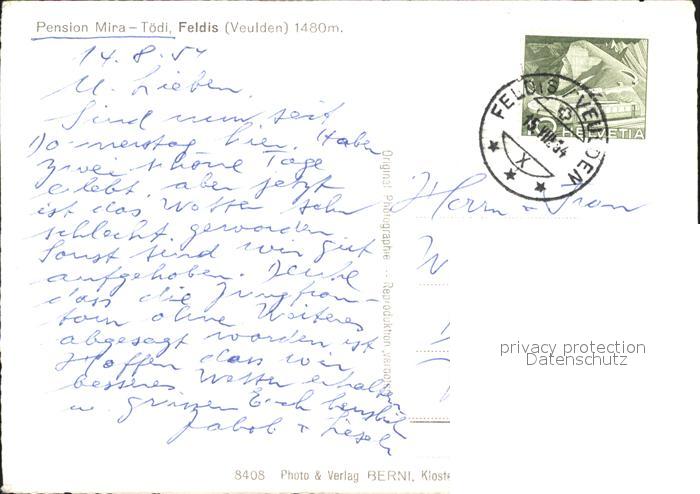 Pension Mira – Tödi, Feldis (Veulden) 1480m.
14.8.54
M. Lieben,
Sind nun seit
Donnerstag hier. Haben
zwei schöne Tage
erlebt, aber jetzt
ist das Wetter sehr
schlecht geworden.
Sonst sind wir gut
aufgehoben.
dass die
ohne Weiteres
abgesagt worden ist
Hoffen dass wir
besseres Wetter erhalten
u. grüssen Euch herzlich
Jakob + Liesel
Original Photographie - Reproduktion verboten
HELVETIA
FELDIS (VEULDEN)
15.VIII.54
X
Herrn + Frau
privacy protection
Datenschutz
8408 Photo & Verlag BERNI, Kloste